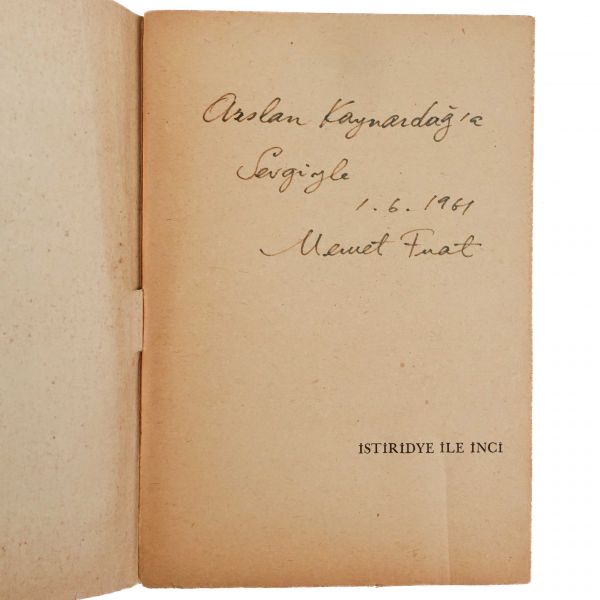 Arslan Kaynardağ'a
Sevgiyle
1.6.1961
Memet Fuat
İSTİRİDYE İLE İNCİ